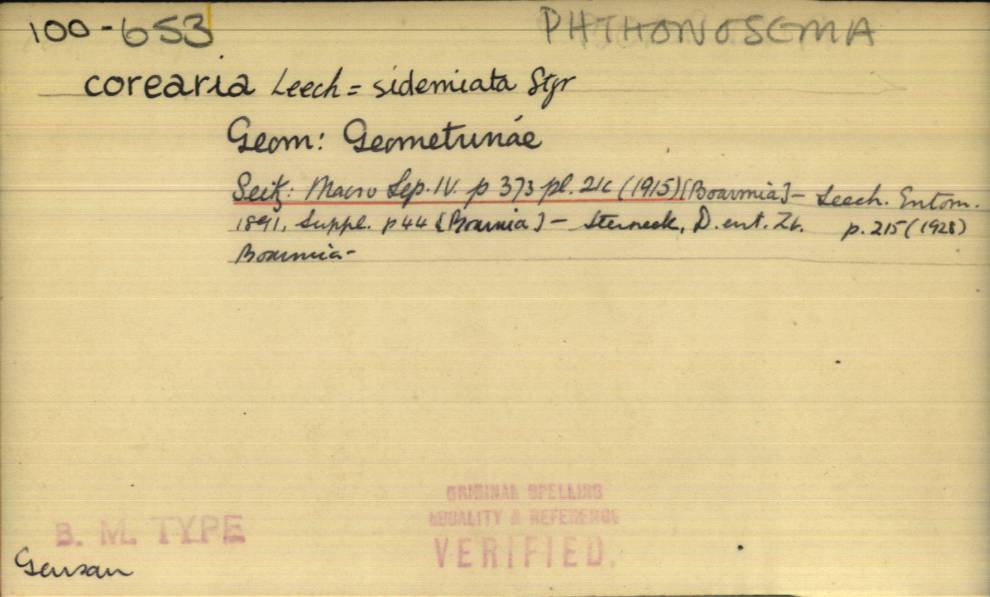 100-653
PHTHONOSEMA
corearia Leech = sidemiata Stgr
Geom: Geometrinae
Seitz: Macro Lep. IV. p 373 pl. 21c (1915) [Boarmia] – Leech. Entom.
1891, Suppl. p 44 [Boarmia] – Sterneck, D. ent. Zt. p. 215 (1928)
Boarmia –
ORIGINAL SPELLING
LOCALITY & REFERENCE
VERIFIED.
B. M. TYPE
Gensan